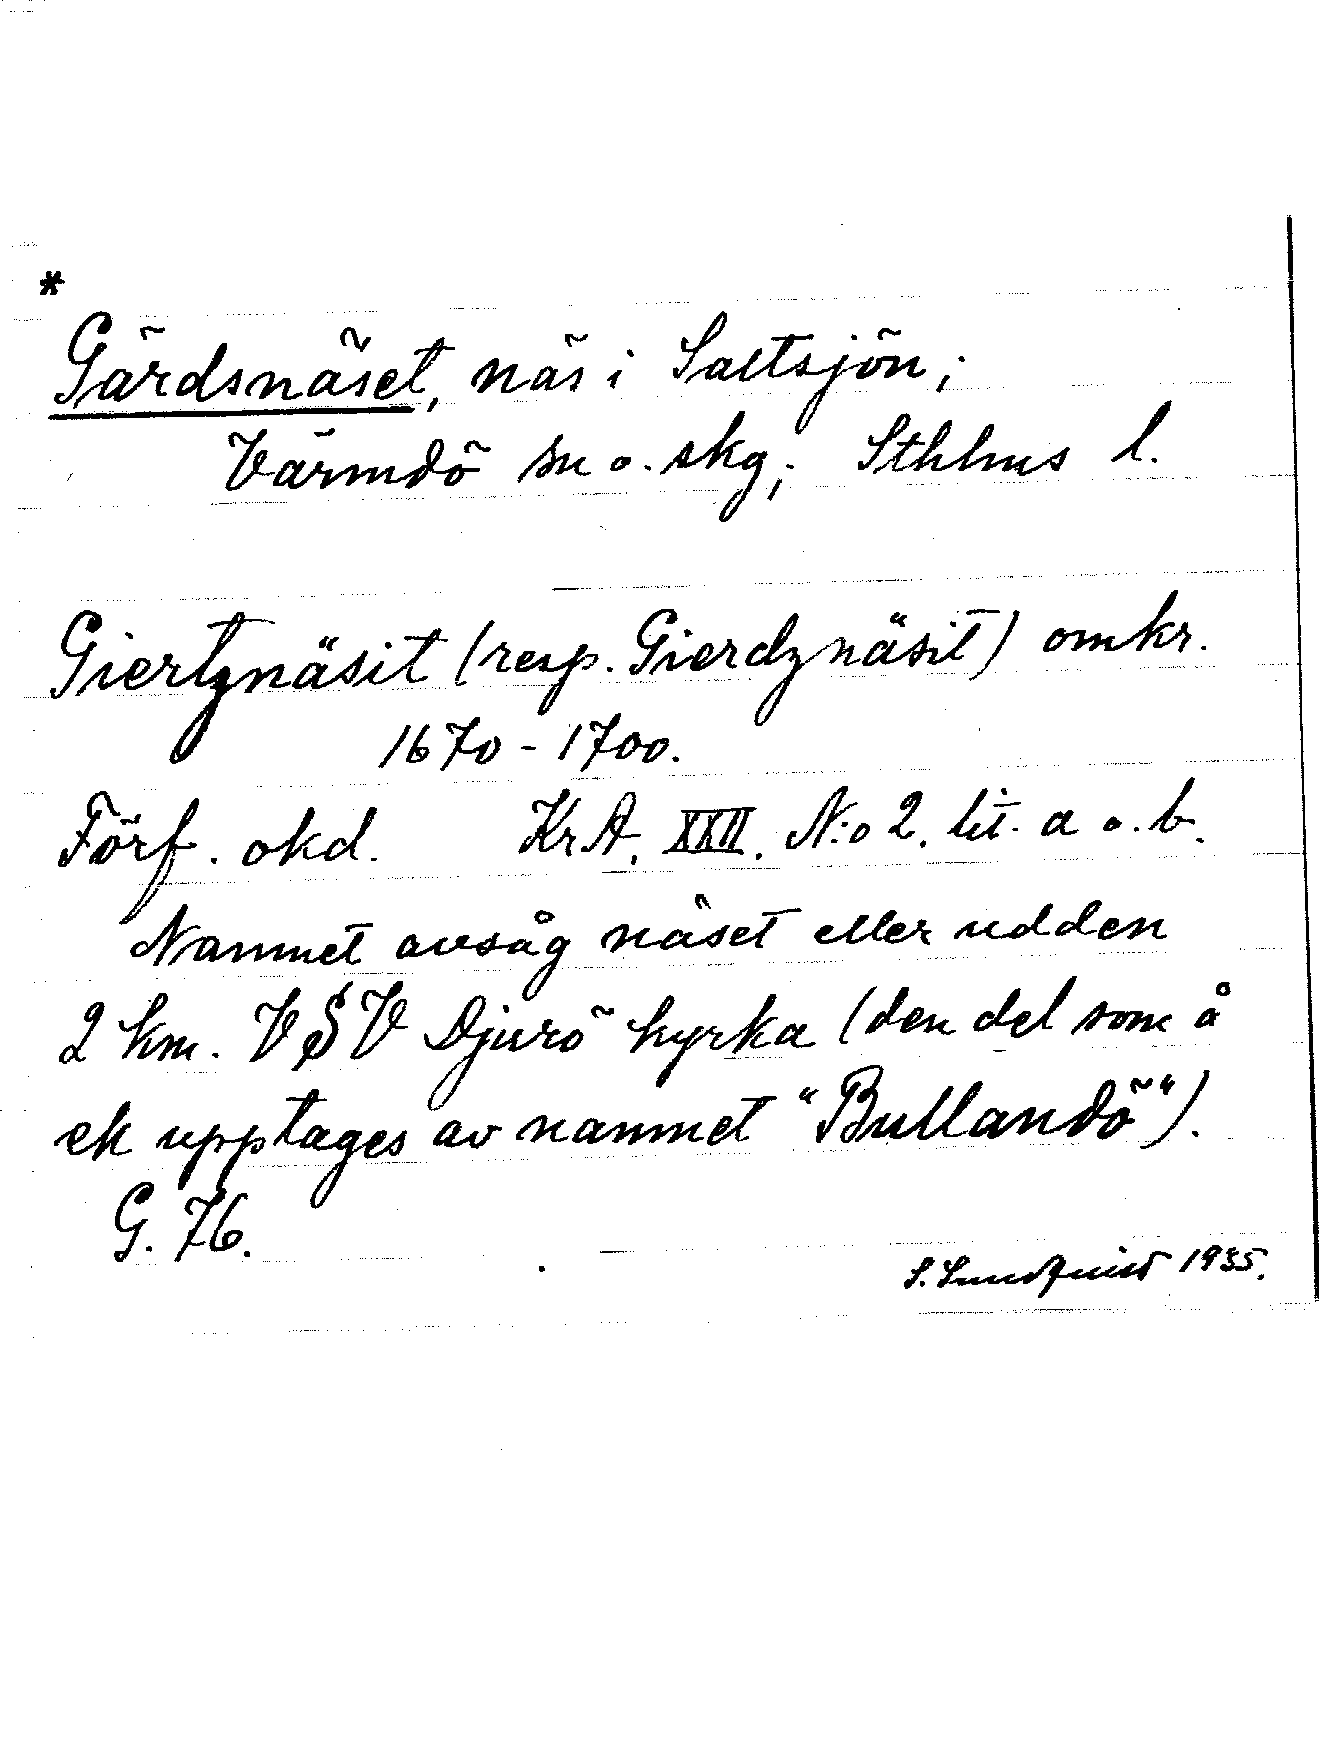 *
Gärdsnäset, näs i Saltsjön;
Värmdö sn o. skg; Sthlms l.
Giertznäsit (resp. Gierdznäsit) omkr.
1670-1700.
Förf. okd. KrA. XXII. N:o 2. lit. a o. b.
Namnet avsåg näset eller udden
2 km. VSV Djurö kyrka (den del som å
ek upptages av namnet "Bullandö").
G. 76.
S. Lundquist 1935.